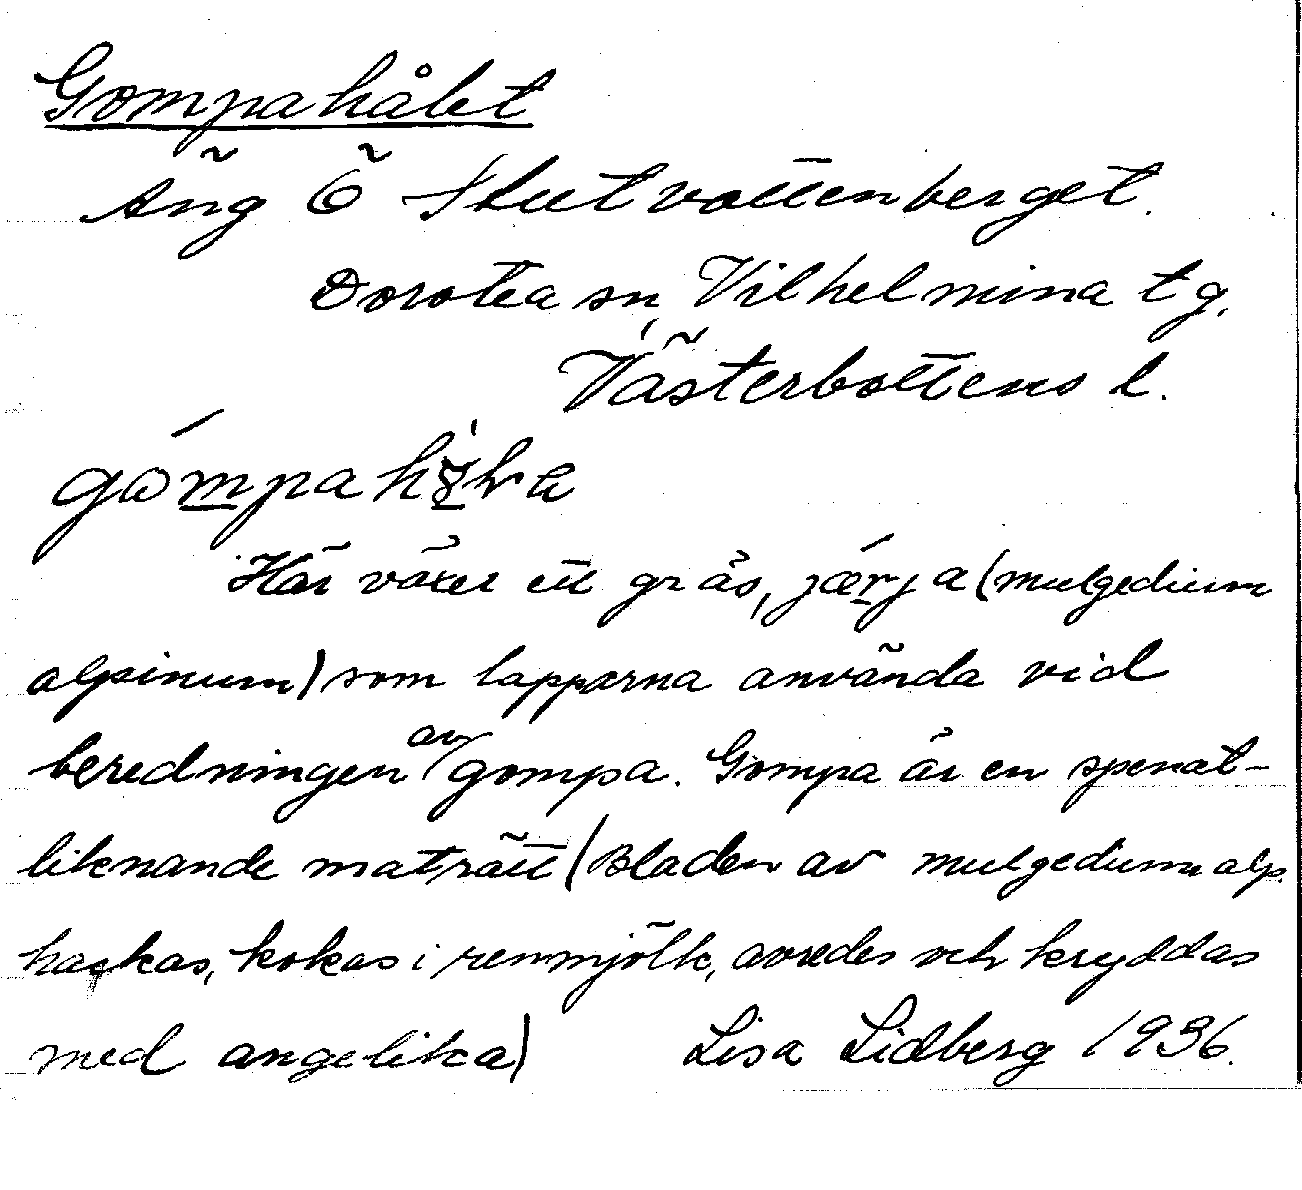 Gompahålet
Äng Ö Stutvattenberget.
Dorotea sn, Vilhelmina tg.
Västerbottens l.
Här växer ett gräs, jærja (mulgedium
alpinum) som lapparna använda vid
beredningen av gompa. Gompa är en spenat-
liknande maträtt (Bladen av mulgedium alp.
hackas, kokas i renmjölk, avredes och kryddas
med angelika) Lisa Lidberg 1936.